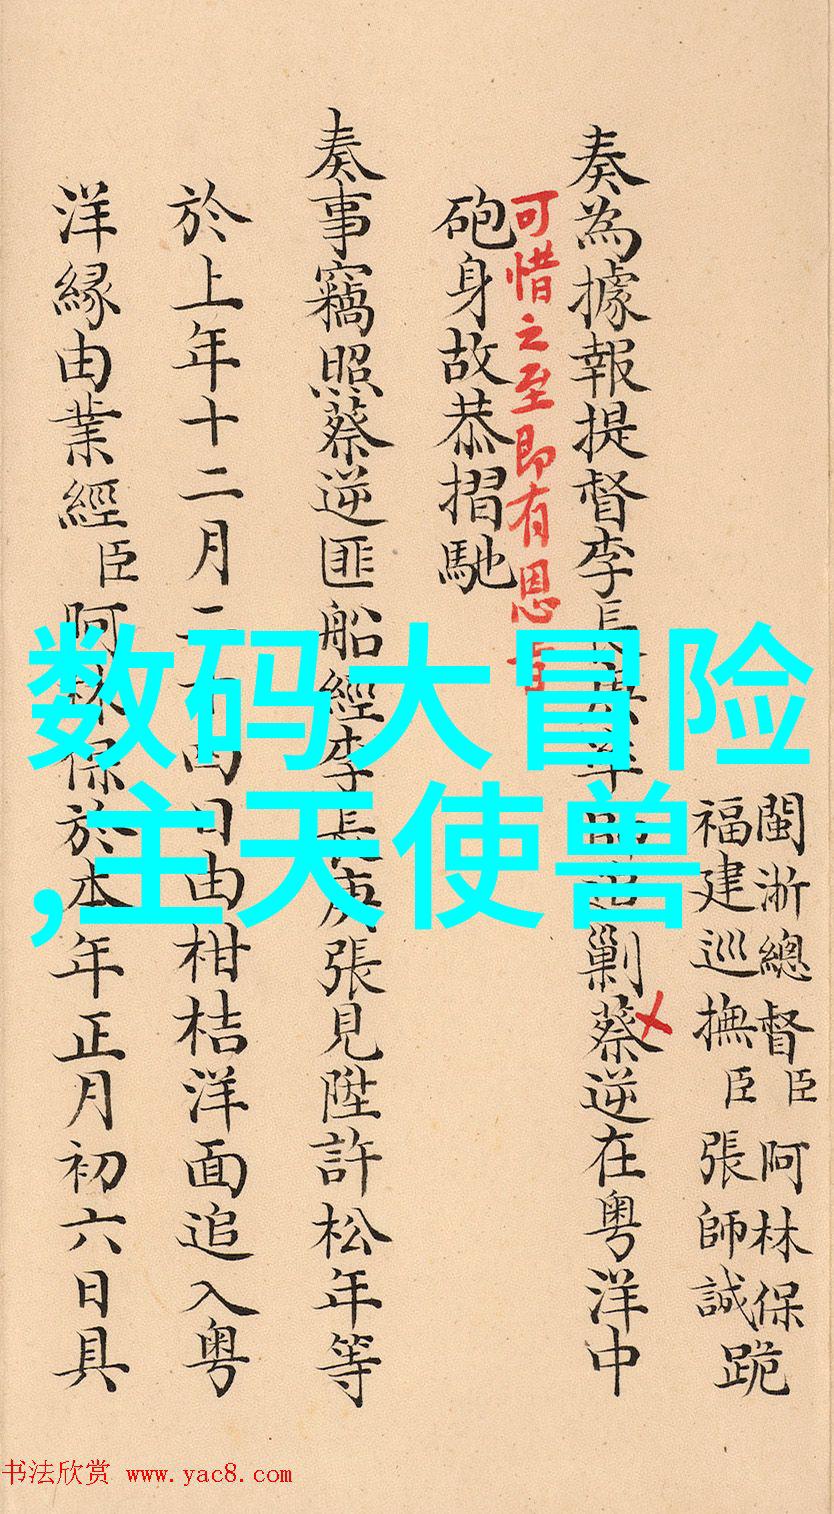 閩浙總督臣阿林保跪
福建巡撫臣張師誠
奏為據報提督李長庚年剿蔡逆在粵洋中
可惜之至即有恩旨
砲身故恭摺馳
奏事竊照蔡逆匪船經李長庚張見陞許松年等
於上年十二月二十四日由柑桔洋面追入粵
洋緣由業經臣阿林保於本年正月初六日具
数码大冒险
,主天使兽
书法欣赏 www.yac8.com